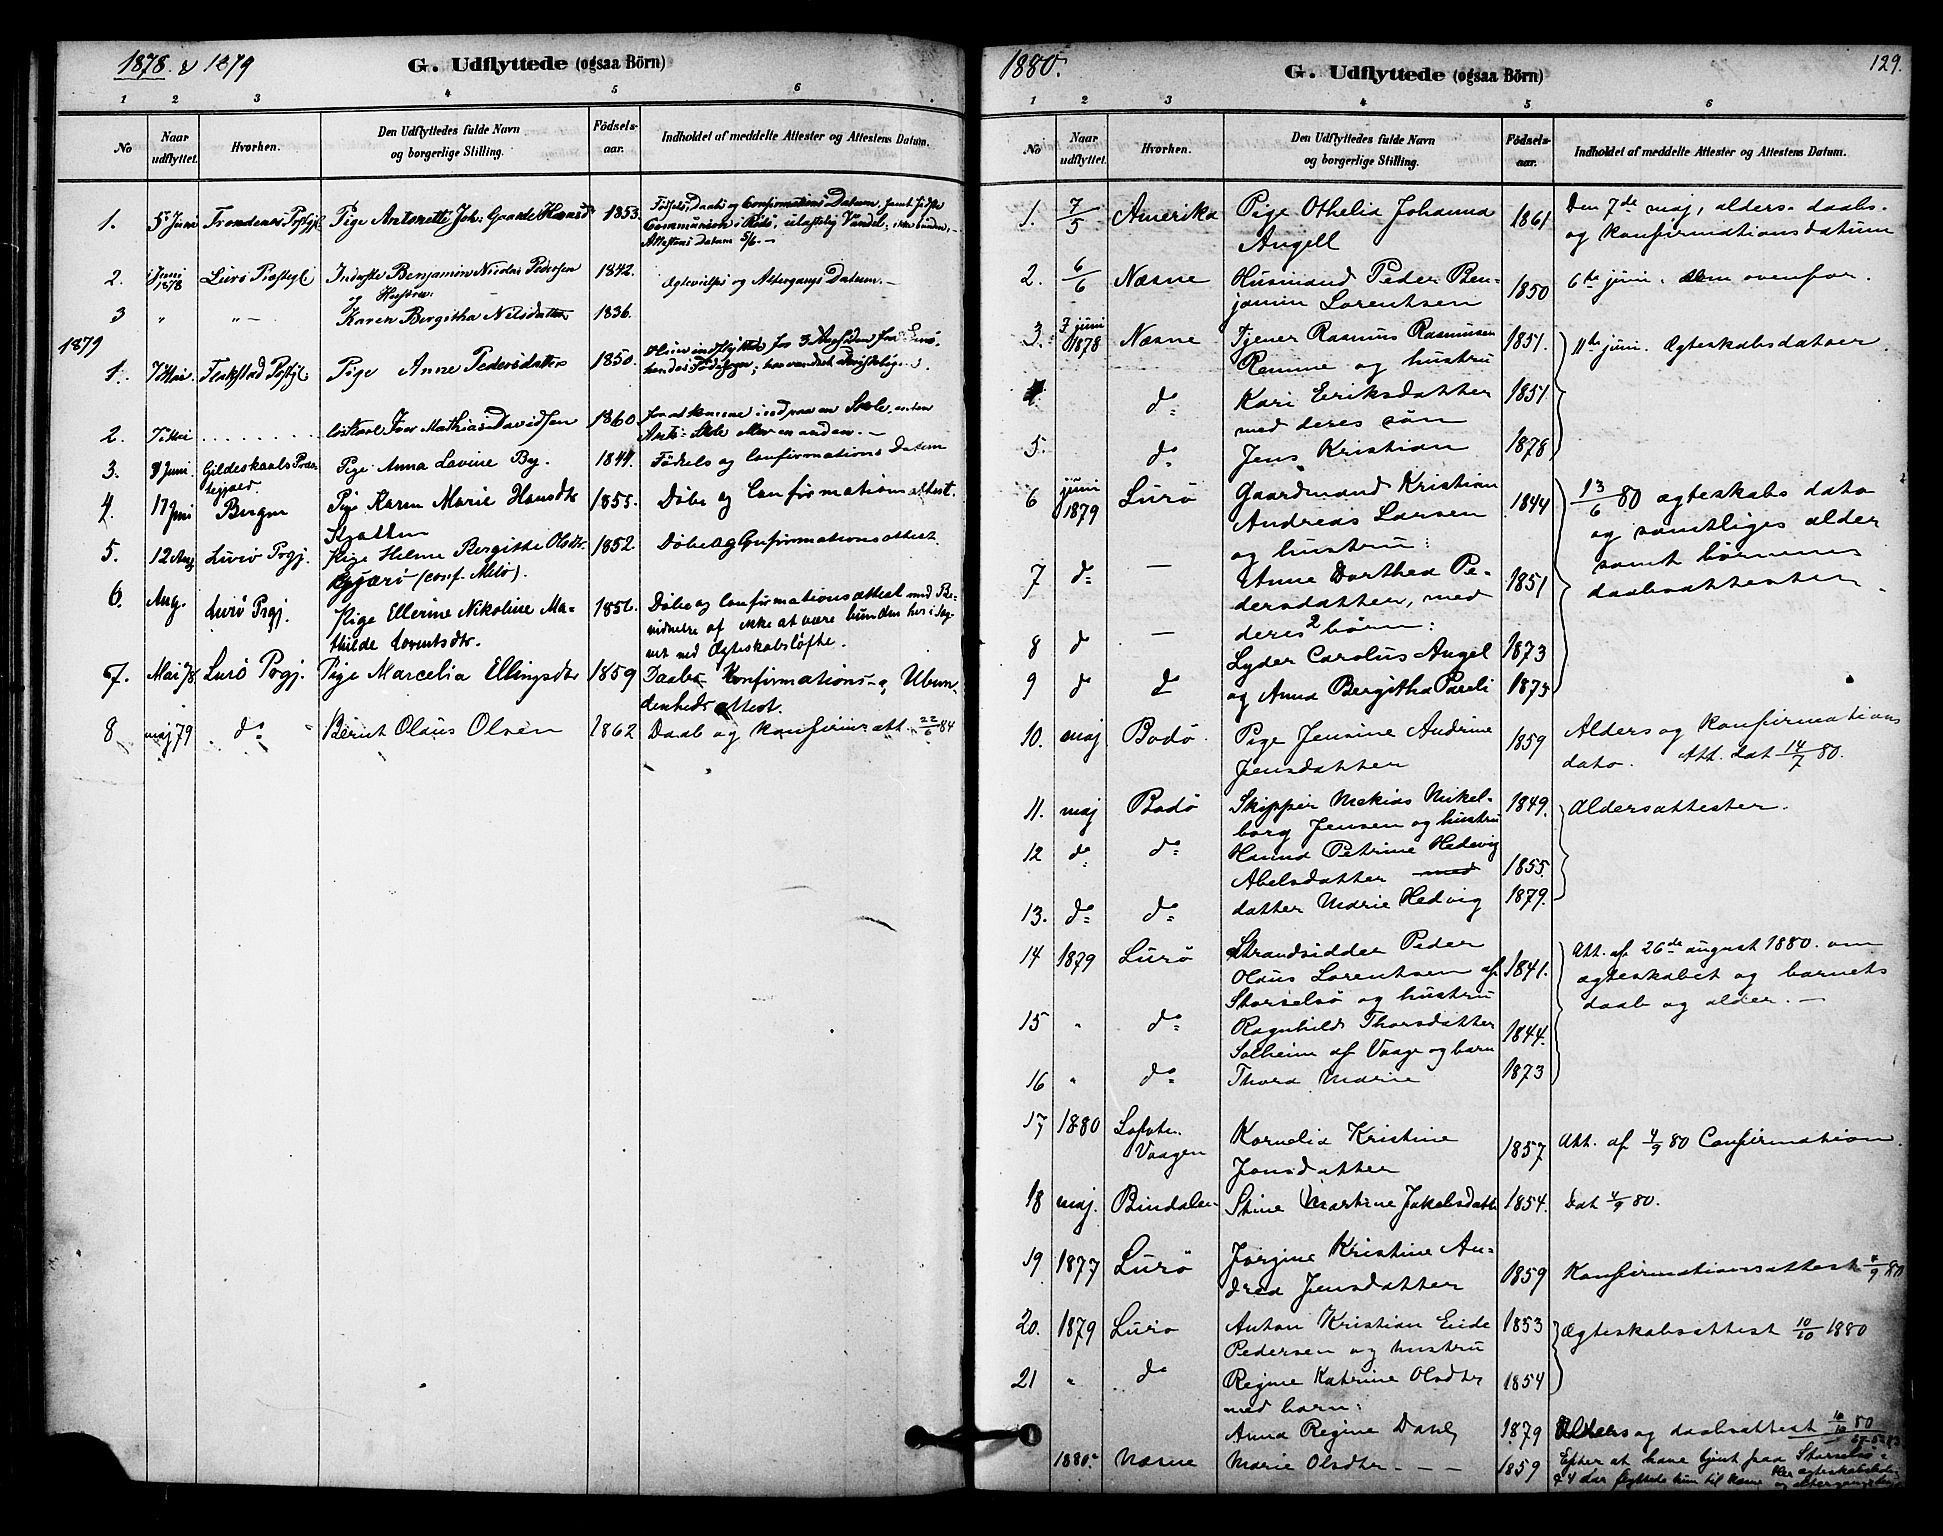 1878 & 1879
G. Udflyttede (ogsaa Börn)
1 2 3 4 5 6
No
Naar udflyttet.
Hvorhen.
Den Udflyttedes fulde Navn og borgerlige Stilling.
Födsels-aar.
Indholdet af meddelte Attester og Attestens Datum.
1. 5 Juni Pige 1853. Födsels, Daabs og Confirmations Datum,
Communion i Rödö, Vandel;
Attestens Datum 5/6. –
2. Juni 1878 Lurö Benjamin Nicolai Pedersen 1842. Ægtevielses og Altergangs Datum. –
og Hustru:
3 " " – Karen Bergitha Nilsdatter 1836.
1879
1. 7 Mai Pige Anne Pedersdatter 1850. indflyttet for 3
2. 7 Mai . . . . . . . . Iver Mathias Davidsen 1860 for at kunne
3. 8 Juni Gildeskaals Præs- Pige Anna Lavine By. 1844. Födsels og Confirmations Datum
tegjæld.
4. 17 Juni Bergen Pige Karen Marie Hansdtr 1855. Döbe og Confirmationsattest.
5. 12 Aug Lurö Pgj. Pige Helene Bergitte Olsdtr. 1852. Döbe og Confirmationsattest.
(conf. Melö).
6. Aug. Lurö Pgj. Pige Ellerine Nikoline Ma- 1856. Döbe og Confirmationsattest med Be-
thilde Lorentsdtr. vidnelse af ikke at være bunden her i Sog-
net ved Ægteskabslöfte.
7. Mai 78 Lurö Pgj. Pige Marcelia Ellingsdtr 1859 Daabs Konfirmations- og Ubun-
denheds attest.
8 maj 79 do Bernt Olaus Olsen 1862 Daab og konfirm. att. 22/6 84
1880.
G. Udflyttede (ogsaa Börn)
129.
1 2 3 4 5 6
No
Naar udflyttet.
Hvorhen.
Den Udflyttedes fulde Navn og borgerlige Stilling.
Födsels-aar.
Indholdet af meddelte Attester og Attestens Datum.
1. 7/5 Amerika Pige Othelia Johanna 1861 Den 7de maj, alders- daabs-
Angell og konfirmationsdatum
2. 6/6 Næsne Husmand Peder Ben- 6te juni. som ovenfor.
jamin Lorentsen 1850
3. 7 juni 1878 Næsne Tjener Rasmus Rasmusen 1851. 11te juni. Ægteskabsdatoer.
Remme og hustru
4 do Kari Eriksdatter 1851
med deres sön
5. do Jens Kristian 1878
6 juni 1879 Lurö Gaardmand Kristian 1844 13/6 80 ægteskabs dato
Andreas Larsen og samtliges alder
og hustru: samt börnenes
7 do — Anne Dorthea Pe- 1851 daabsattester.
dersdatter, med
8 do — deres 2 börn:
Lyder Carolus Angel 1873
9 do do og Anna Bergitha Pareli 1875
10. maj Bodö. Pige Jensine Andrine 1859 Alders og konfirmations
Jensdatter dato. Att. dat 14/7 80.
11. maj Bodö Skipper Mekias Mikel- 1849. Aldersattester.
borg Jensen og hustru
12 do do Hanna Petrine Hedevig
Abelsdatter med 1855.
13. do do datter Marie Hedvig 1879.
14 1879 Lurö Strandsidder Peder Att. af 26de august 1880 om
Olaus Lorentsen af 1841. ægteskabet og barnets
Storselsö og hustru daab og alder. –
15 " do Ragnhild Thorsdatter 1844.
Solheim af Vaage og barn
16 " do Thora Marie 1873
17 1880 Lofoten Kornelia Kristine 1857 Att. af 4/9 80 Confirmation.
Vaagen Jonsdatter
18 maj. Bindalen Stine Martine Jakobsdatter 1854. dat 4/9 80.
19 1877 Lurö Jorgine Kristine An-
drea Jensdatter 1859 Konfirmationsattest 4/9 80
20. 1879 Lurö Anton Kristian Eide 1853 Ægteskabsattest 10/10 1880
Pedersen og hustru
21 " do Regine Katrine Olsdtr 1854
med barn:
Anna Regine Dahl 1879 Alders og daabsattest 10/10 80
1880. Næsne Marie Olsdtr – – – 1859 Efter at have tjent paa Storselsö
4 aar flyttede hun til